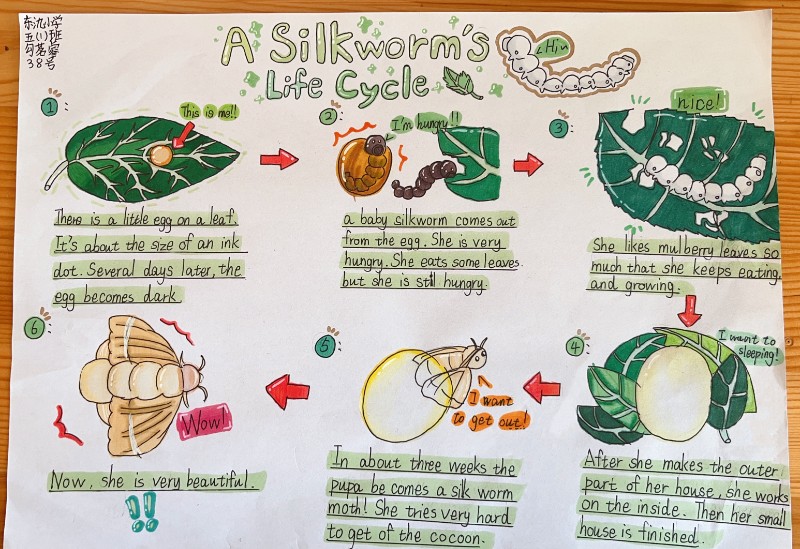 东沈小学
五(1)班
38号
A Silkworm's
Life Cycle
Hi
①
This is me!!
There is a little egg on a leaf.
It's about the size of an ink
dot. Several days later, the
egg becomes dark.
②
I'm hungry!!
a baby silkworm comes out
from the egg. She is very
hungry. She eats some leaves.
but she is still hungry.
③
nice!
She likes mulberry leaves so
much that she keeps eating
and growing.
④
I want to
sleeping!
After she makes the outer
part of her house, she works
on the inside. Then her small
house is finished.
⑤
I want
to get out!
In about three weeks the
pupa be comes a silk worm
moth! She tries very hard
to get of the cocoon.
⑥
Wow!
Now, she is very beautiful.
!!